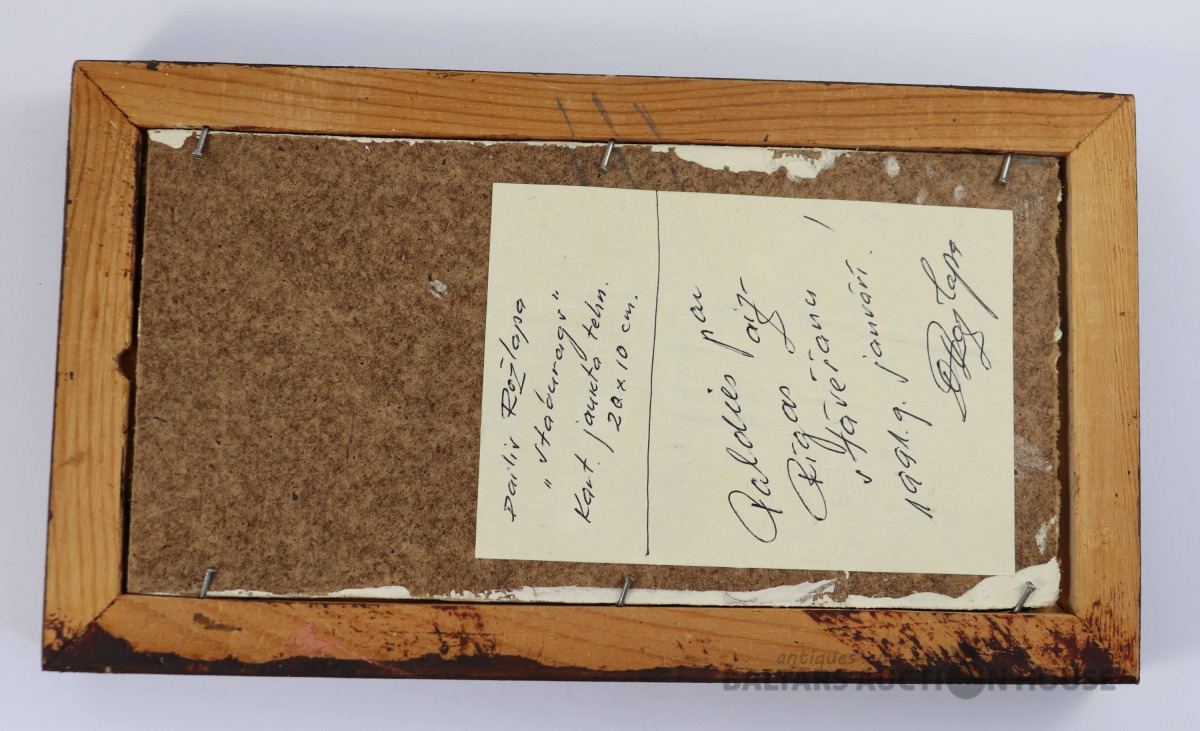 Dailis Rožlapa
"Staburags"
Kart. jaukta tehn.
20x10 cm.
Paldies par
Rīgas aiz-
stāvēšanu !
1991.g. janvārī.
DRožlapa
antiques
BALTARS AUCTION HOUSE